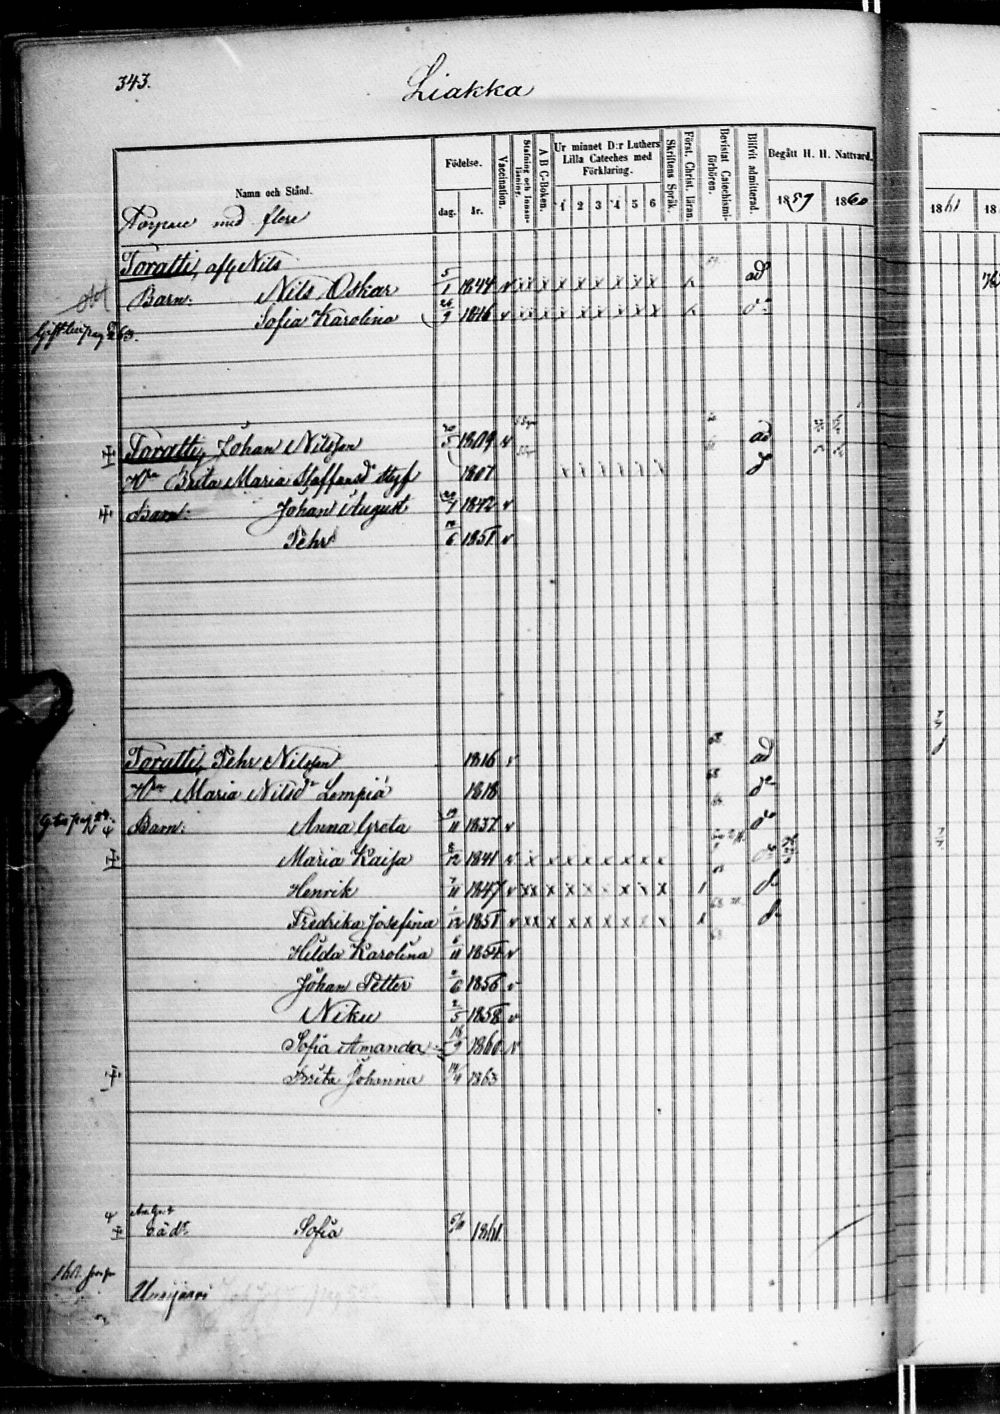 343.
Liakka
Namn och Stånd.
Födelse.
dag.
år.
Vaccination.
Stafning och Innanläsning.
A B C-Boken.
Ur minnet D:r Luthers Lilla Cateches med Förklaring.
1 2 3 4 5 6
Skriftens Språk.
Först. Christ. läran.
Bevistat Catechismiförhören.
Blifvit admitterad.
Begått H. H. Nattvard.
1859
1860
1861
med flere
Toratti, afl. Nils
Barn: Nils Oskar 5/1 1844 v xx x x x x x x x x ad
Sofia Karolina 26/9 1846 v xx x x x x x x x x do
Toratti, Johan Nilsson 1809 v ad
Hu Brita Maria Staffansdr 1807 x x x x x x
Barn: Johan August 1842 v
Pehr 1851 v
Toratti, Pehr Nilsson 1816 v ad
Hu Maria Nilsdr Lompiä 1818 do
Barn: Anna Greta 19/11 1837 v do
Maria Kaisa 8/12 1841 v x x x x x x x x
Henrik 7/11 1847 v xx x x x x x x
Fredrika Josefina 1/12 1851 v xx x x x x x x x
Hilda Karolina 6/11 1854 v
Johan Petter 2/6 1856 v
Niku 2/5 1858 v
Sofia Amanda 18/9 1860 v
Brita Johanna 14/4 1863
o.ä. dr Sofia 1861